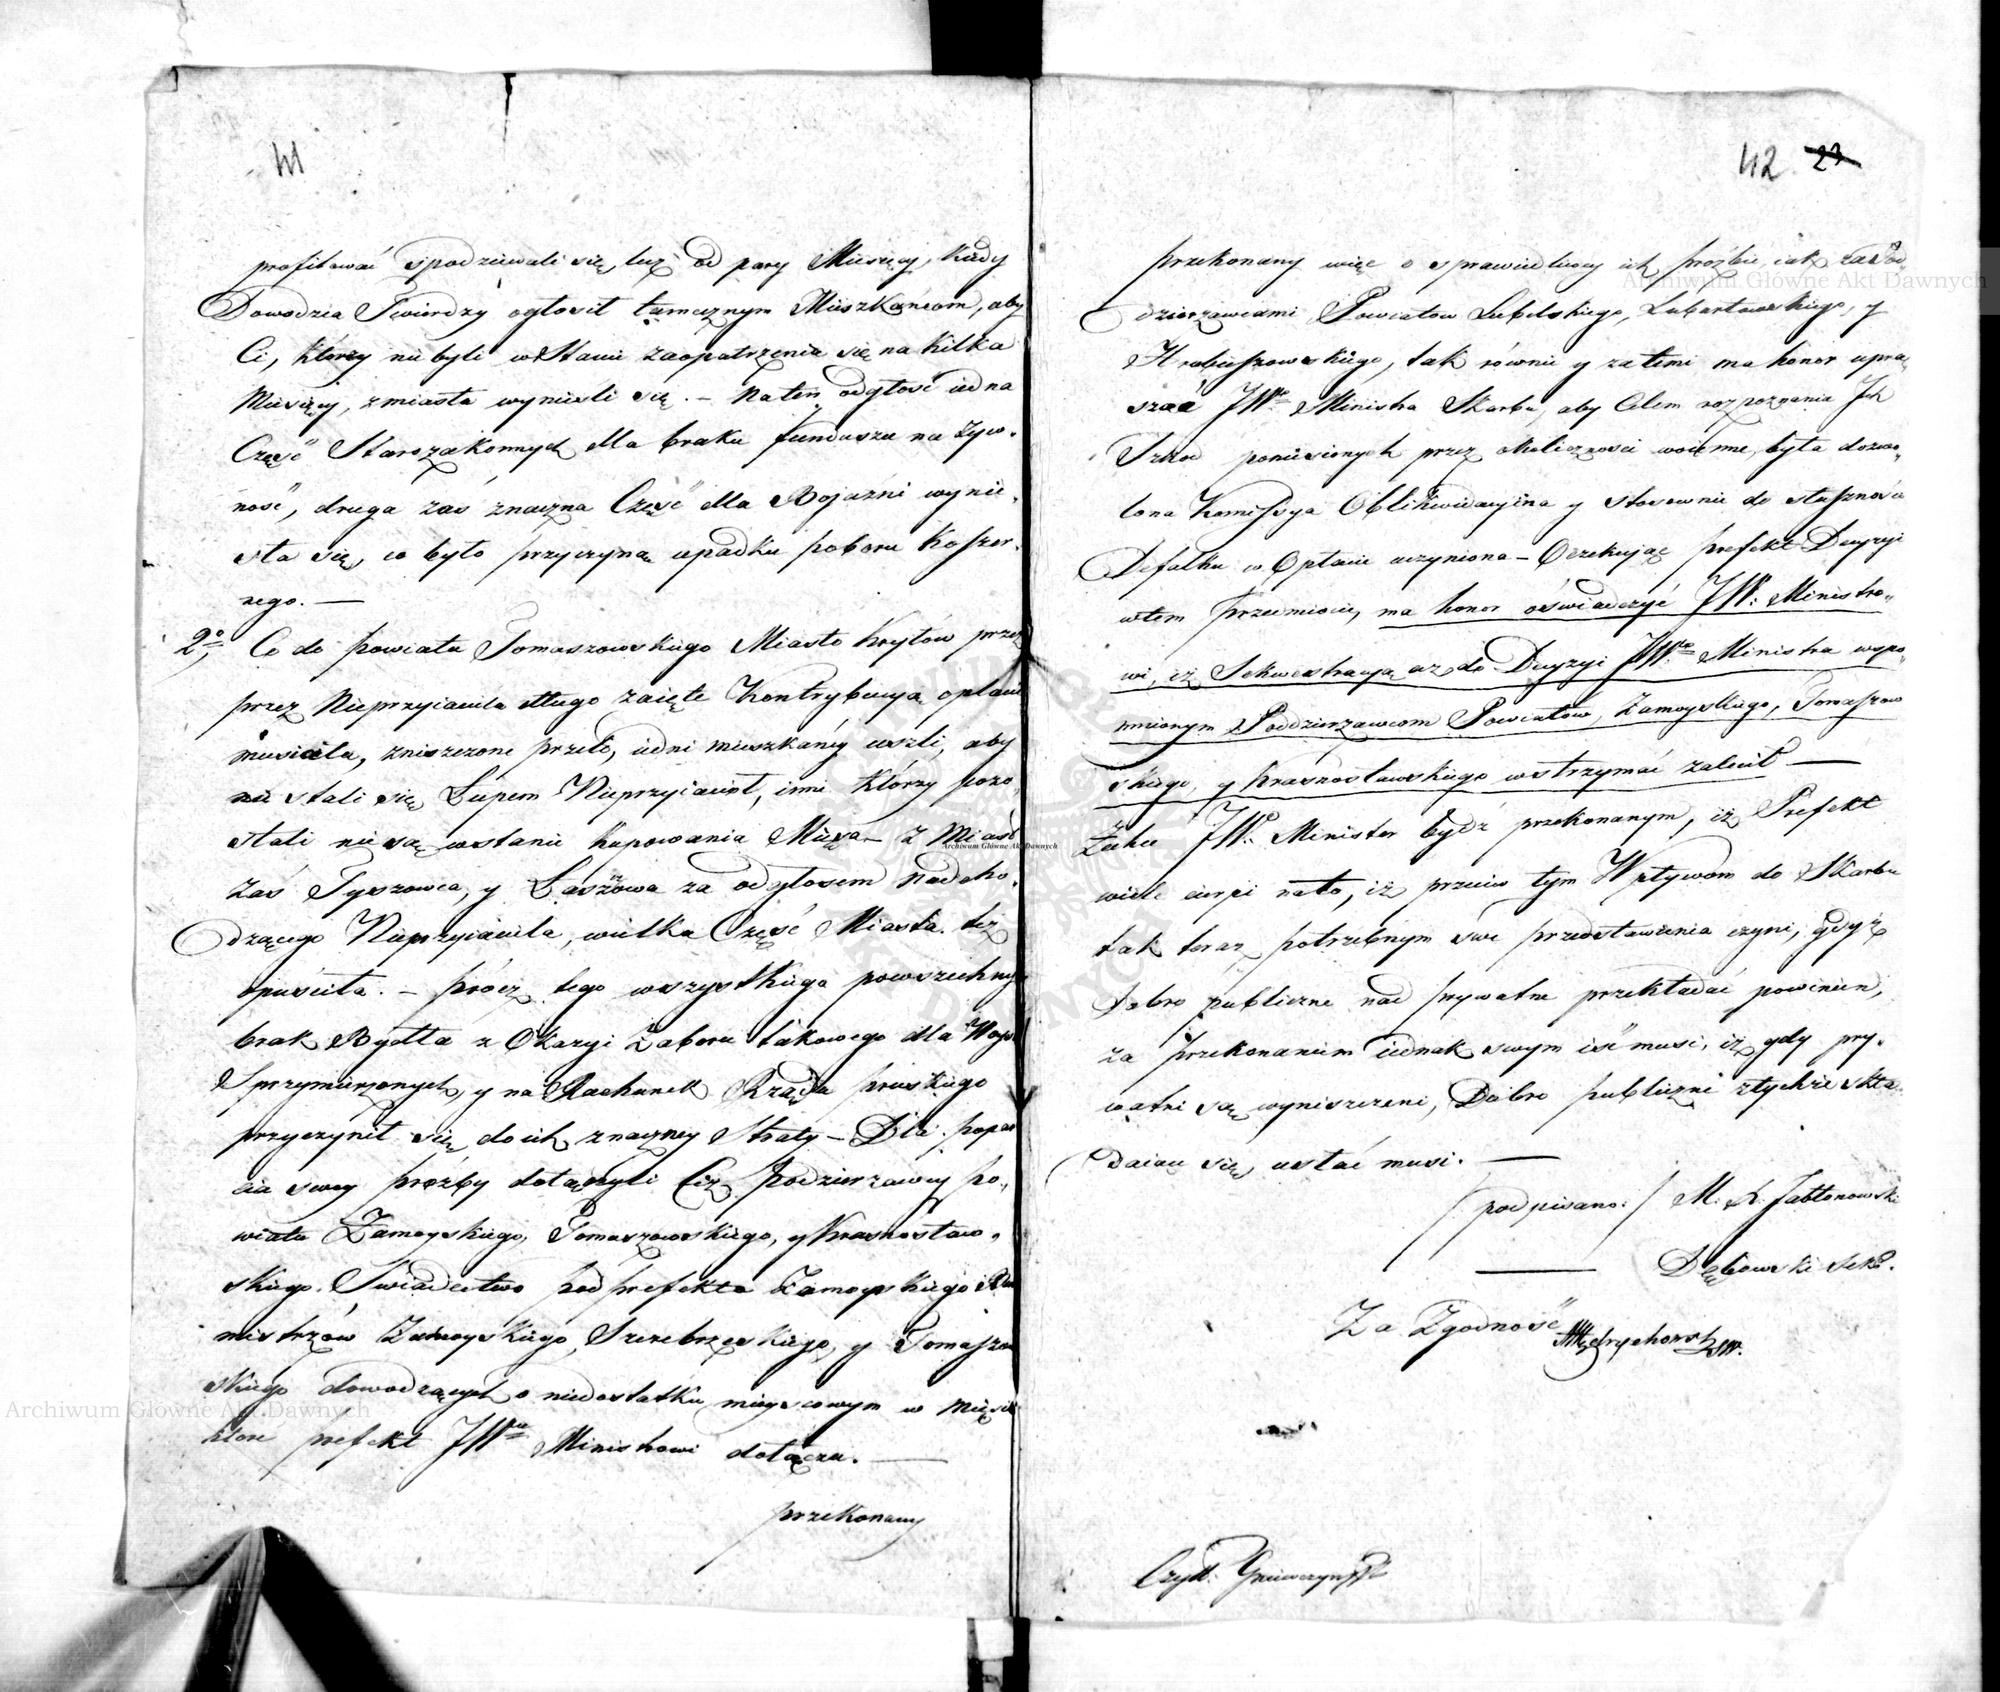 41
profitować spodziewali się, lecz od pary Miesięcy, kiedy
Dowodzca Twierdzy ogłosił tamecznym Mieszkańcom, aby
Ci, którzy nie byli w Stanie zaopatrzenia się na kilka
Miesięcy, z miasta wynieśli się. — Na ten odgłos iedna
Część Starozakonnych dla braku funduszu na żyw-
ność, druga zaś znaczna Część dla Bojaźni wynio-
sła się, co było przyczyną upadku poboru koszer-
nego. —
2º Co do powiatu Tomaszowskiego Miasto Kryłow przez
przez Nieprzyiaciela długo zaięte Kontrybucyą opłacać
musiało, zniszczone przeto, iedni mieszkańcy uszli, aby
nie stali się Łupem Nieprzyiaciół, inni którzy pozo-
stali nie są w stanie kupowania Mięsa — Z Miast
zaś Tyszowca, y Łaszowa za odgłosem nadcho-
dzącego Nieprzyiaciela, wielka Część Miasta też
opuściła. — prócz tego wszystkiego powszechny
brak Bydła z Okazyi Zaboru takowego dla Woysk
Sprzymierzonych, y na Rachunek Rządu pruskiego
przyczynił się do ich znaczney Straty — Dla popar
cia swey proźby dołączyli Ciż Podzierzawcy po-
wiatu Zamoyskiego, Tomaszowskiego, y Krasnostaw-
skiego Swiadectwo podprefekta Zamoyskiego i Bur
mistrzów Zamoyskiego, Szczebrzeskiego, y Tomaszow
skiego dowodzących o niedostatku mieyscowym w mięsie
które prefekt JWu Ministrowi dołącza. —
przekonany
42 23
przekonany więc o sprawiedliwey ich proźbie, iak za Pod
dzierzawcami Powiatow Lubelskiego, Lubartowskiego, y
Hrubieszowskiego, tak równie y za temi ma honor upra-
szać JWo Ministra Skarbu, aby Celem rozpoznania Ich
Szkod poniesionych przez okoliczności woienne, była dozwo-
lona Kommissya Oblikwidacyina y stosownie do słuszności
Defalka w Opłacie uczyniona — Oczekując prefekt Decyzyi
w tem przedmiocie, ma honor oświadczyć JW. Ministro-
wi, iż Sekwestracyą az do Decyzyi JWgo Ministra wspo-
mnionym Poddzierzawcom Powiatow, Zamoyskiego, Tomaszow
skiego, y Krasnostawskiego wstrzymać zalecił —
JW. Minister bydź przekonanym, iż Prefekt
wiele cierpi na to, iż przeciw tym Wpływom do Skarbu
tak teraz potrzebnym swe przedstawienia czyni, gdyż
Dobro publiczne nad prywatne przekładać powinien,
za przekonaniem iednak swym iść musi, iż gdy pry-
watni są wyniszczeni, Dobro publiczne z tychże skła-
daiące się, ustać musi. —
/podpisano:/ M. X. Jabłonowski
Dębowski Sekr.
Za Zgodność
Czyt: Gniewczyński